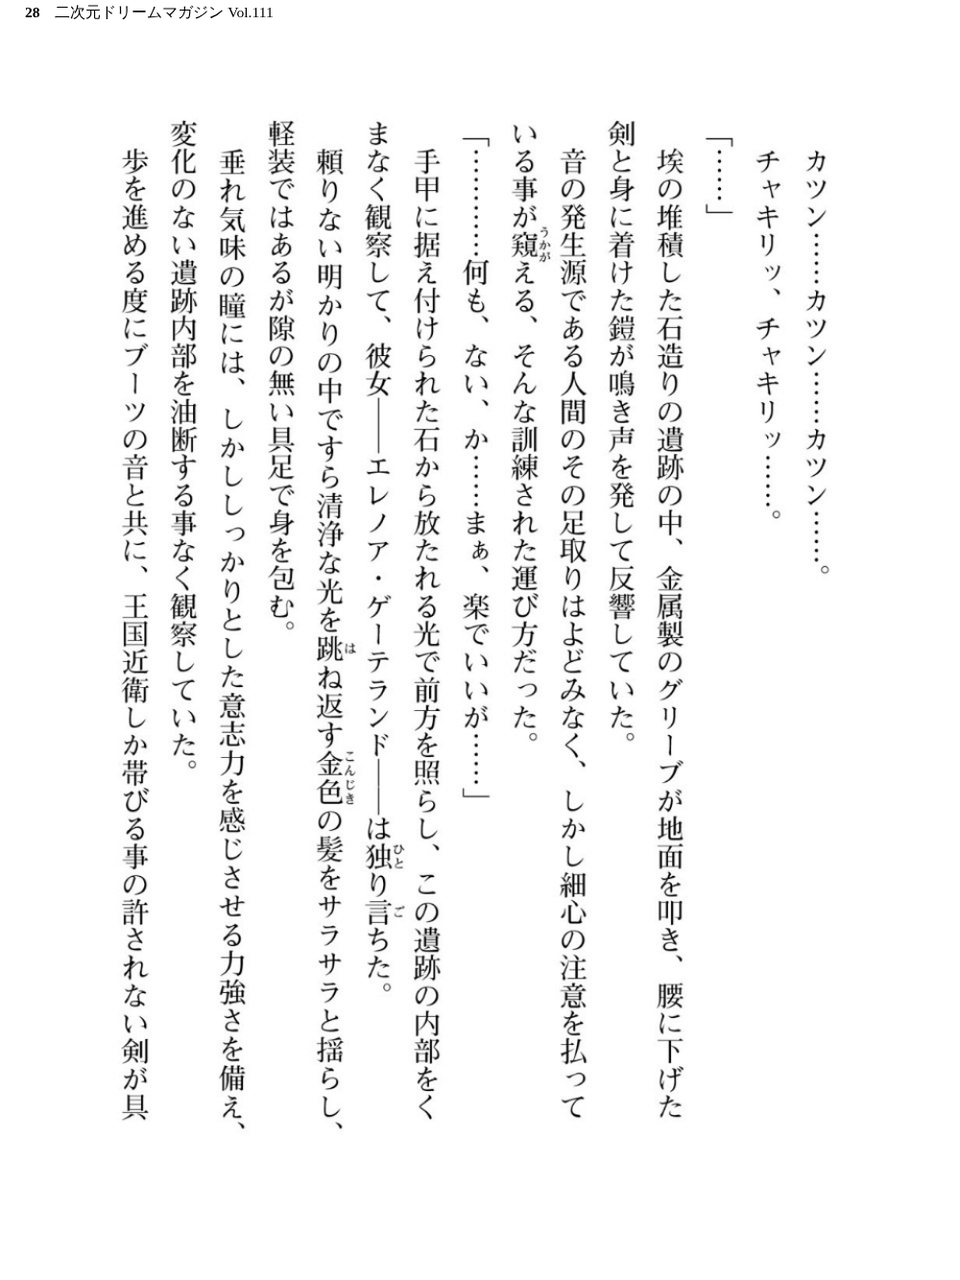 28 二次元ドリームマガジン Vol.111
カツン……カツン……カツン……。
チャキリッ、チャキリッ……。
「……」
埃の堆積した石造りの遺跡の中、金属製のグリーブが地面を叩き、腰に下げた
剣と身に着けた鎧が鳴き声を発して反響していた。
音の発生源である人間のその足取りはよどみなく、しかし細心の注意を払って
いる事が窺える、そんな訓練された運び方だった。
「…………何も、ない、か……まぁ、楽でいいが……」
手甲に据え付けられた石から放たれる光で前方を照らし、この遺跡の内部をく
まなく観察して、彼女――エレノア・ゲーテランド――は独り言ちた。
頼りない明かりの中ですら清浄な光を跳ね返す金色の髪をサラサラと揺らし、
軽装ではあるが隙の無い具足で身を包む。
垂れ気味の瞳には、しかししっかりとした意志力を感じさせる力強さを備え、
変化のない遺跡内部を油断する事なく観察していた。
歩を進める度にブーツの音と共に、王国近衛しか帯びる事の許されない剣が具